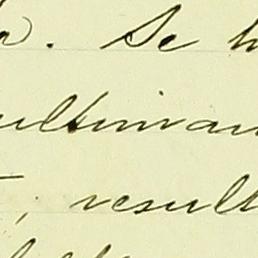 . Se h
ultiman
; result